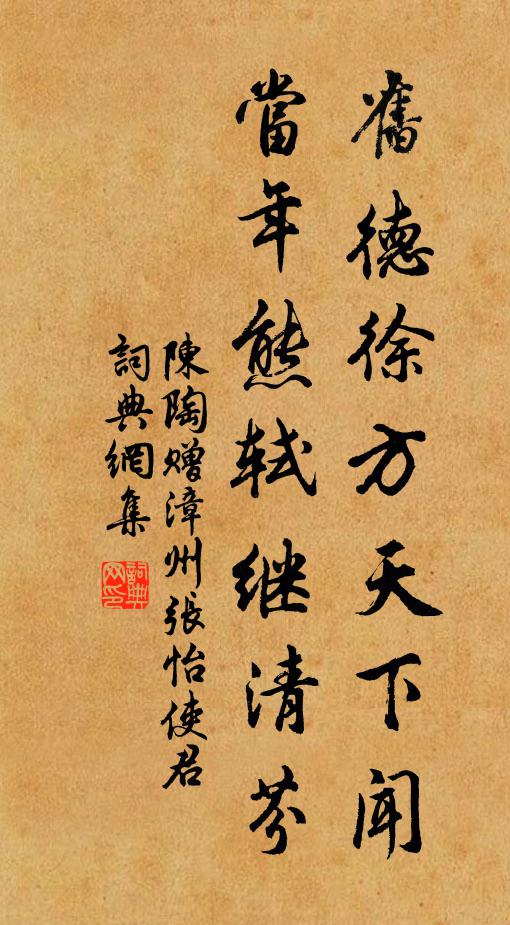 舊德徐方天下聞
當年熊軾继清芬
陳陶贈漳州張怡使君
詞典網集
詞典網印